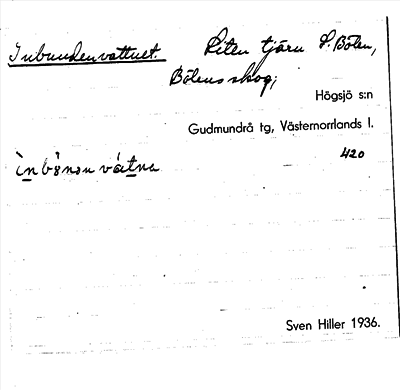 Inbundenvattnet. Liten tjärn S. Bölen,
Bölens skog;
Högsjö s:n
Gudmundrå tg, Västernorrlands l.
420
Sven Hiller 1936.